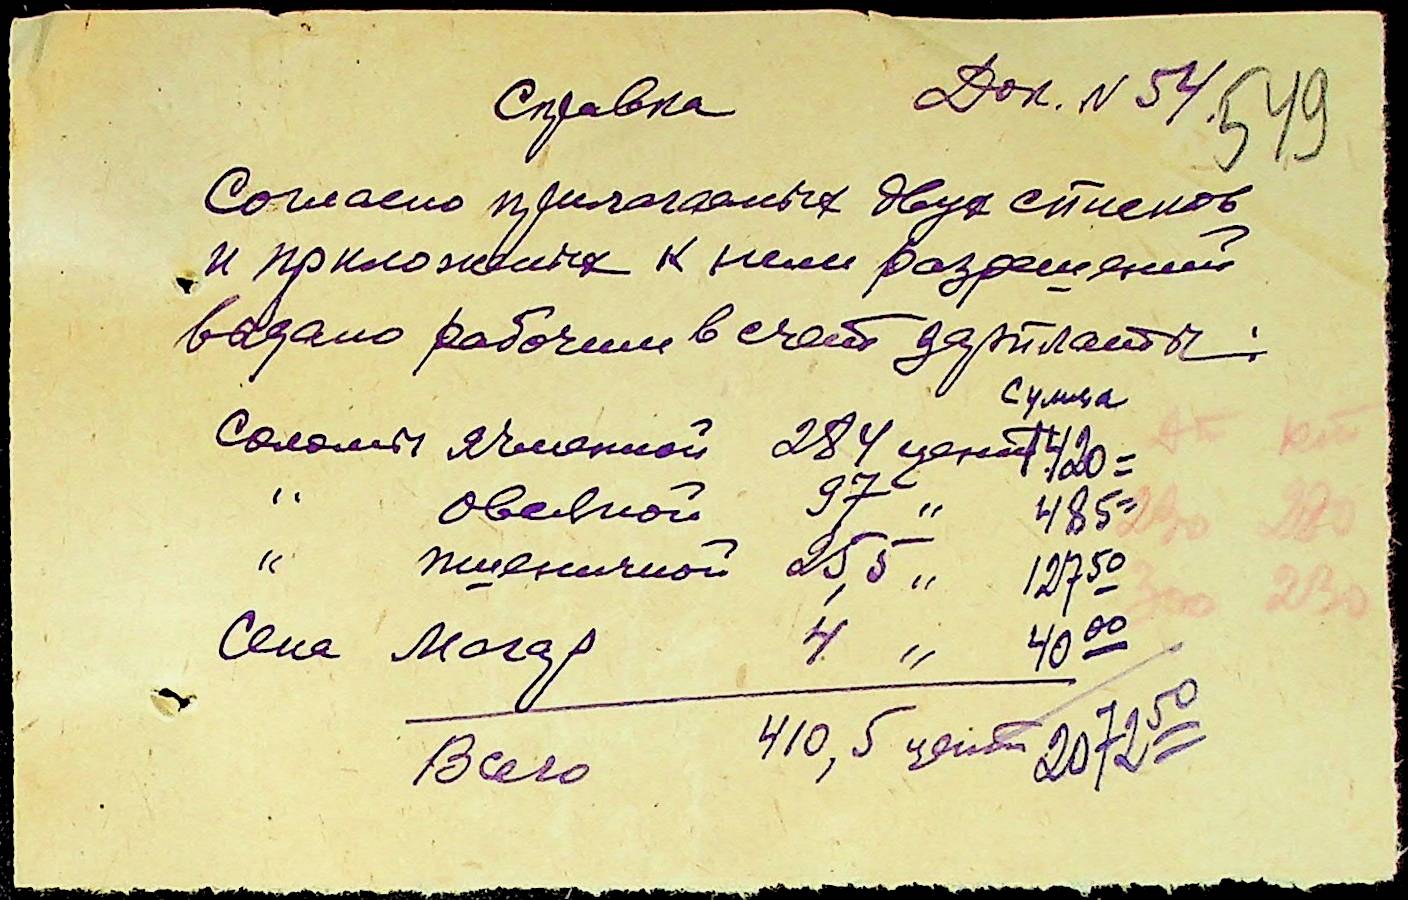 Справка Док. N 54.
549
Согласно прилагаемых двух списков
и приложеных к ним разрешений
выдано рабочим в счет зарплаты:
Сумма
Соломы ячменной 284 цент 1420=
" овсяной 97 " 485=
" пшеничной 25,5 " 127 50
Сена Могар 4 " 40 00
Всего 410,5 цент 2072 50
дт кт
230 280
300 230